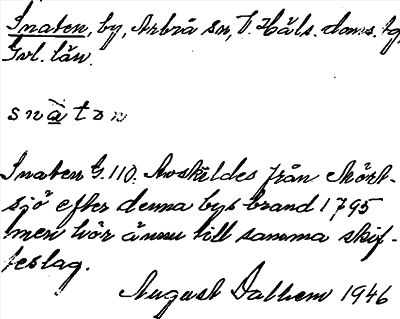 Snaten, by, Arbrå sn, V. Häls. doms. tg,
Gvl. län.
snàton
Snaten G.110. Avskildes från Mört-
sjö efter denna bys brand 1795
men hör ännu till samma skif-
teslag.
August Dalhem 1946